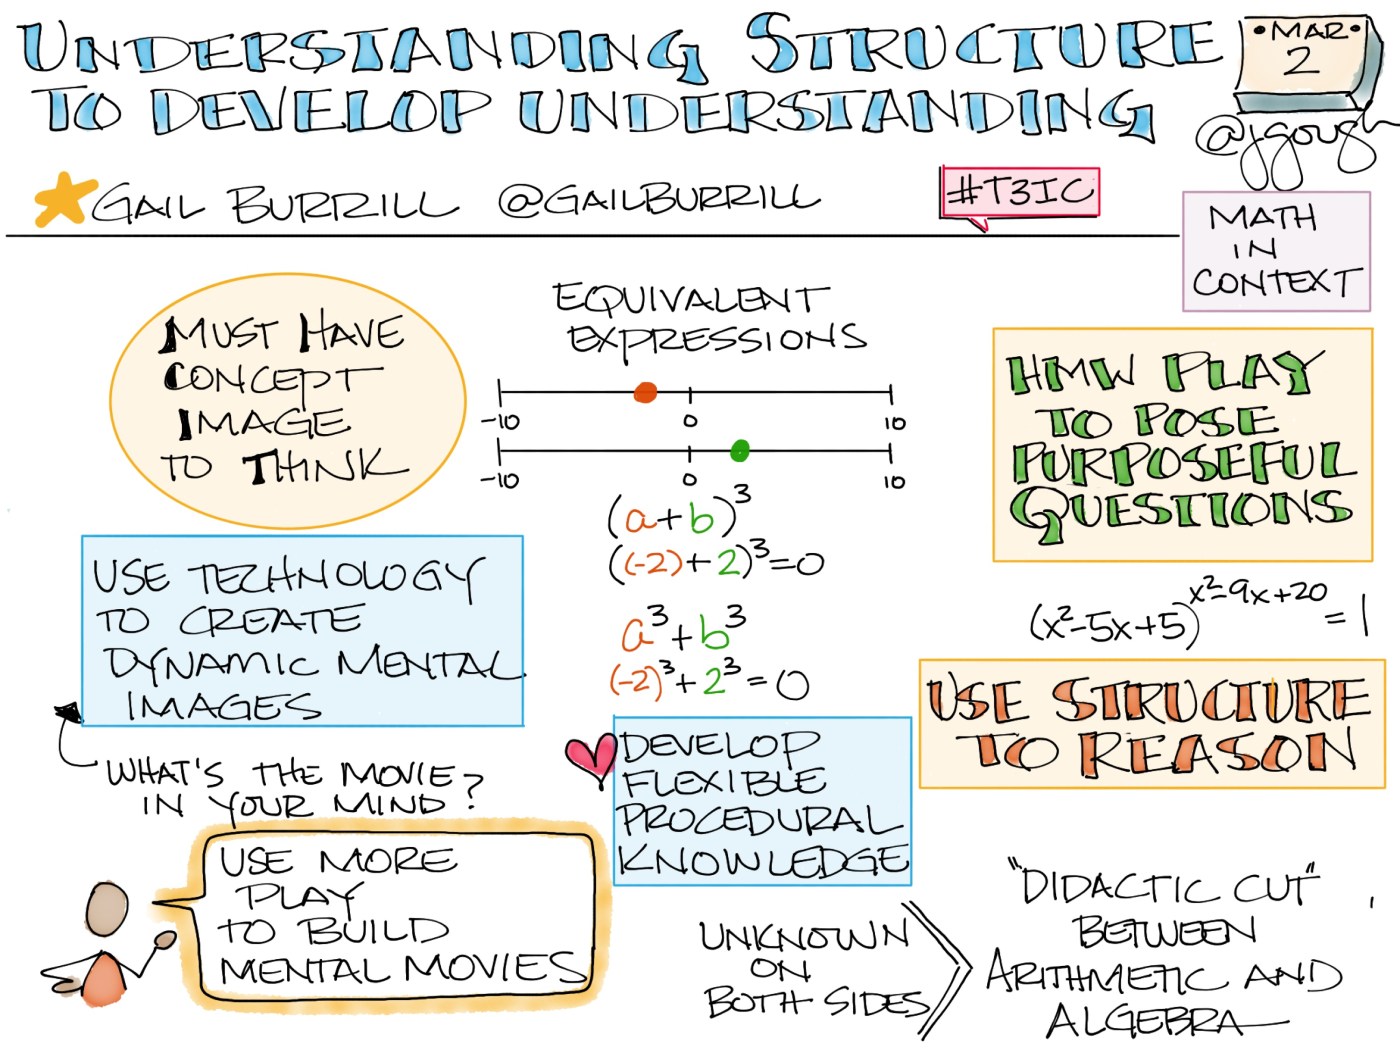 UNDERSTANDING STRUCTURE
TO DEVELOP UNDERSTANDING
•MAR•
2
@jgough
GAIL BURRILL @GAILBURRILL
#T3IC
MATH
IN
CONTEXT
MUST HAVE
CONCEPT
IMAGE
TO THINK
EQUIVALENT
EXPRESSIONS
-10 0 10
-10 0 10
(a+b)³
((-2)+2)³=0
a³+b³
(-2)³+2³=0
HMW PLAY
TO POSE
PURPOSEFUL
QUESTIONS
(x²-5x+5)^(x²-9x+20) = 1
USE STRUCTURE
TO REASON
USE TECHNOLOGY
TO CREATE
DYNAMIC MENTAL
IMAGES
WHAT'S THE MOVIE?
IN YOUR MIND?
USE MORE
PLAY
TO BUILD
MENTAL MOVIES
DEVELOP
FLEXIBLE
PROCEDURAL
KNOWLEDGE
UNKNOWN
ON
BOTH SIDES
"DIDACTIC CUT"
BETWEEN
ARITHMETIC AND
ALGEBRA